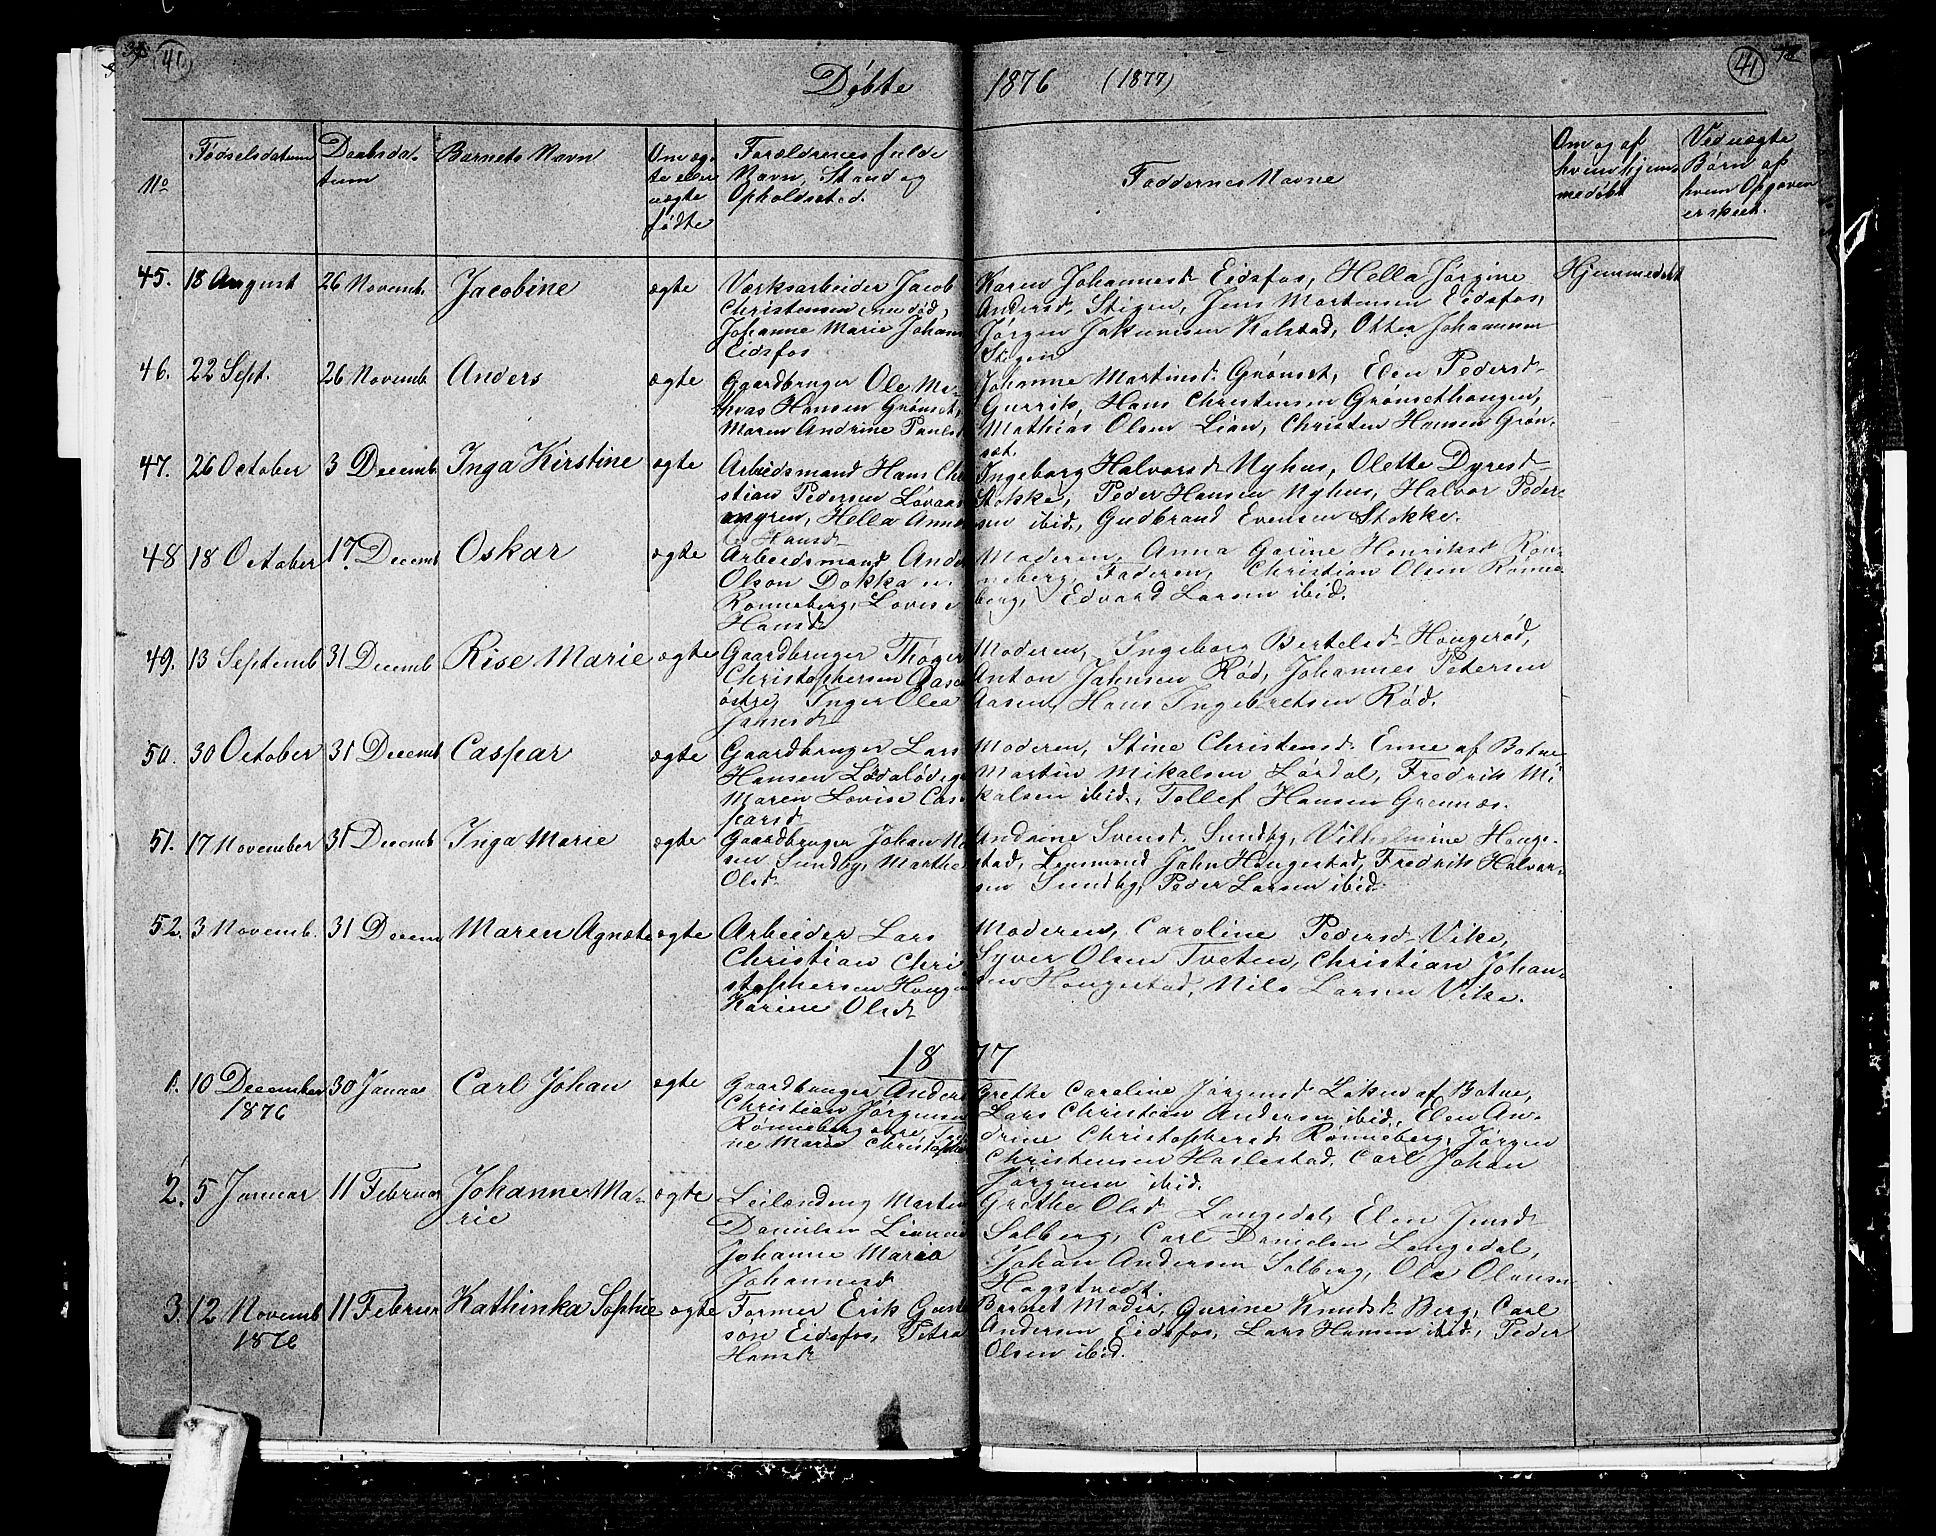 41
41
Döbte 1876 (1877)
No
Fødselsdatum
Daabsda-
tum
Barnets Navn
Om æg-
te eller
uægte
fødte
Forældrenes fulde
Navn, Stand og
Opholdssted.
Faddernes Navne
Om og af
hvem hjem-
medøbt
Ved uægte
Børn af
hvem Opgaven
er skeet.
45. 18 August 26 Novemb. Jacobine ægte
Værksarbeider Jacob
Christensen (nu død)
Johanne Marie Johans
Eidsfos
Karen Johannesd Eidsfos, Hella Jørgine
Andersd. Stigen, Jens Martensen Eidsfos,
Jørgen Jakobsen Kolstad, Otter Johannesen
Stigen
Hjemmedøbt
46. 22 Sept. 26 Novemb Anders ægte
Gaardbruger Ole Ma-
thias Hansen Grønset,
Maren Andrine Paulsd
Johanne Martinsd. Grønset, Elen Pedersd-
Gurrik, Hans Christensen Grønsethaugen,
Mathias Olsen Lian, Christen Hansen Grøn-
set.
47. 26 October 3 Decemb. Inga Kirstine ægte
Arbeidsmand Hans Chri
stian Pedersen Løvaas
engren, Hella Anne
Hansd
Ingeborg Halvorsd Nyhus, Olette Dyresd-
Stokke, Peder Hansen Nyhus, Halvor Peder-
sen ibid., Gudbrand Evensen Stokke.
48 18 October 17. Decemb Oskar ægte
Arbeidsmand Anders
Olson Dokka u.
Rønneberg, Lovise
Hansd
Moderen, Anna Gorine Henriksd Røn-
neberg, Faderen, Christian Olsen Rønne-
berg, Edvard Larsen ibid.
49. 13 Septemb 31 Decemb Rise Marie ægte
Gaardbruger Thoger
Christophersen Aasen
østre, Inger Olea
Jansd
Moderen, Ingeborg Bertelsd Haugerød,
Anton Jahnsen Rød, Johannes Petersen
Aasen, Hans Ingebretsen Rød.
50. 30 October 31 Decemb Caspar ægte
Gaardbruger Lars
Hansen
Maren Lovise Cas-
parsd
Moderen, Stine Christensd. Enne af Botne
Martin Mikalsen Lørdal, Fredrik Mi
kalsen ibid., Tollef Hansen Grennæs.
51. 17 November 31 Decemb Inga Marie ægte
Gaardbruger Johan
sen Sundby, Marthe
Olsd.
Andrine Svensd. Sundby, Vilhelmine Hauge-
stad, Lensmand John Haugestad, Fredrik Halvor-
sen Sundby, Peder Larsen ibid.
52. 3 Novemb. 31 Decem Maren Agnete ægte
Arbeider Lars
Christian Chri
stophersen Haugen
Karine Olsd
Moderen, Caroline Pedersd- Vike,
Syver Olsen Tveten, Christian Johan-
sen Haugestad, Nils Larsen Vike.
1877
1. 10 December 30 Januar Carl Johan ægte
1876
Gaardbruger Anders
Christian Jørgensen
Rønneberg øvre
ne Marie Christophersd
Grethe Caroline Jørgensd Løken af Botne,
Lars Christian Andersen ibid., Elen An-
drine Christophersd Rønneberg, Jørgen
Christensen Haslestad, Carl Johan
Jørgensen ibid.
2. 5 Januar 11 Februar Johanne Ma-
rie ægte
Leilænding Martin
Danielsen
Johanne Maria
Johannesd
Grethe Olsd Langedal, Elen Jensd-
Solberg, Carl Danielsen Langedal,
Johan Andersen Solberg, Ole Olausen
Hagstvedt.
3. 12 Novemb 11 Februar Kathinka Sophie ægte
1876
Former Erik Gust
søn Eidsfos, Petra
Hansd
Barnets Moder, Gurine Knudsd. Berg, Carl
Andersen Eidsfos, Lars Hansen ibid., Peder
Olsen ibid.